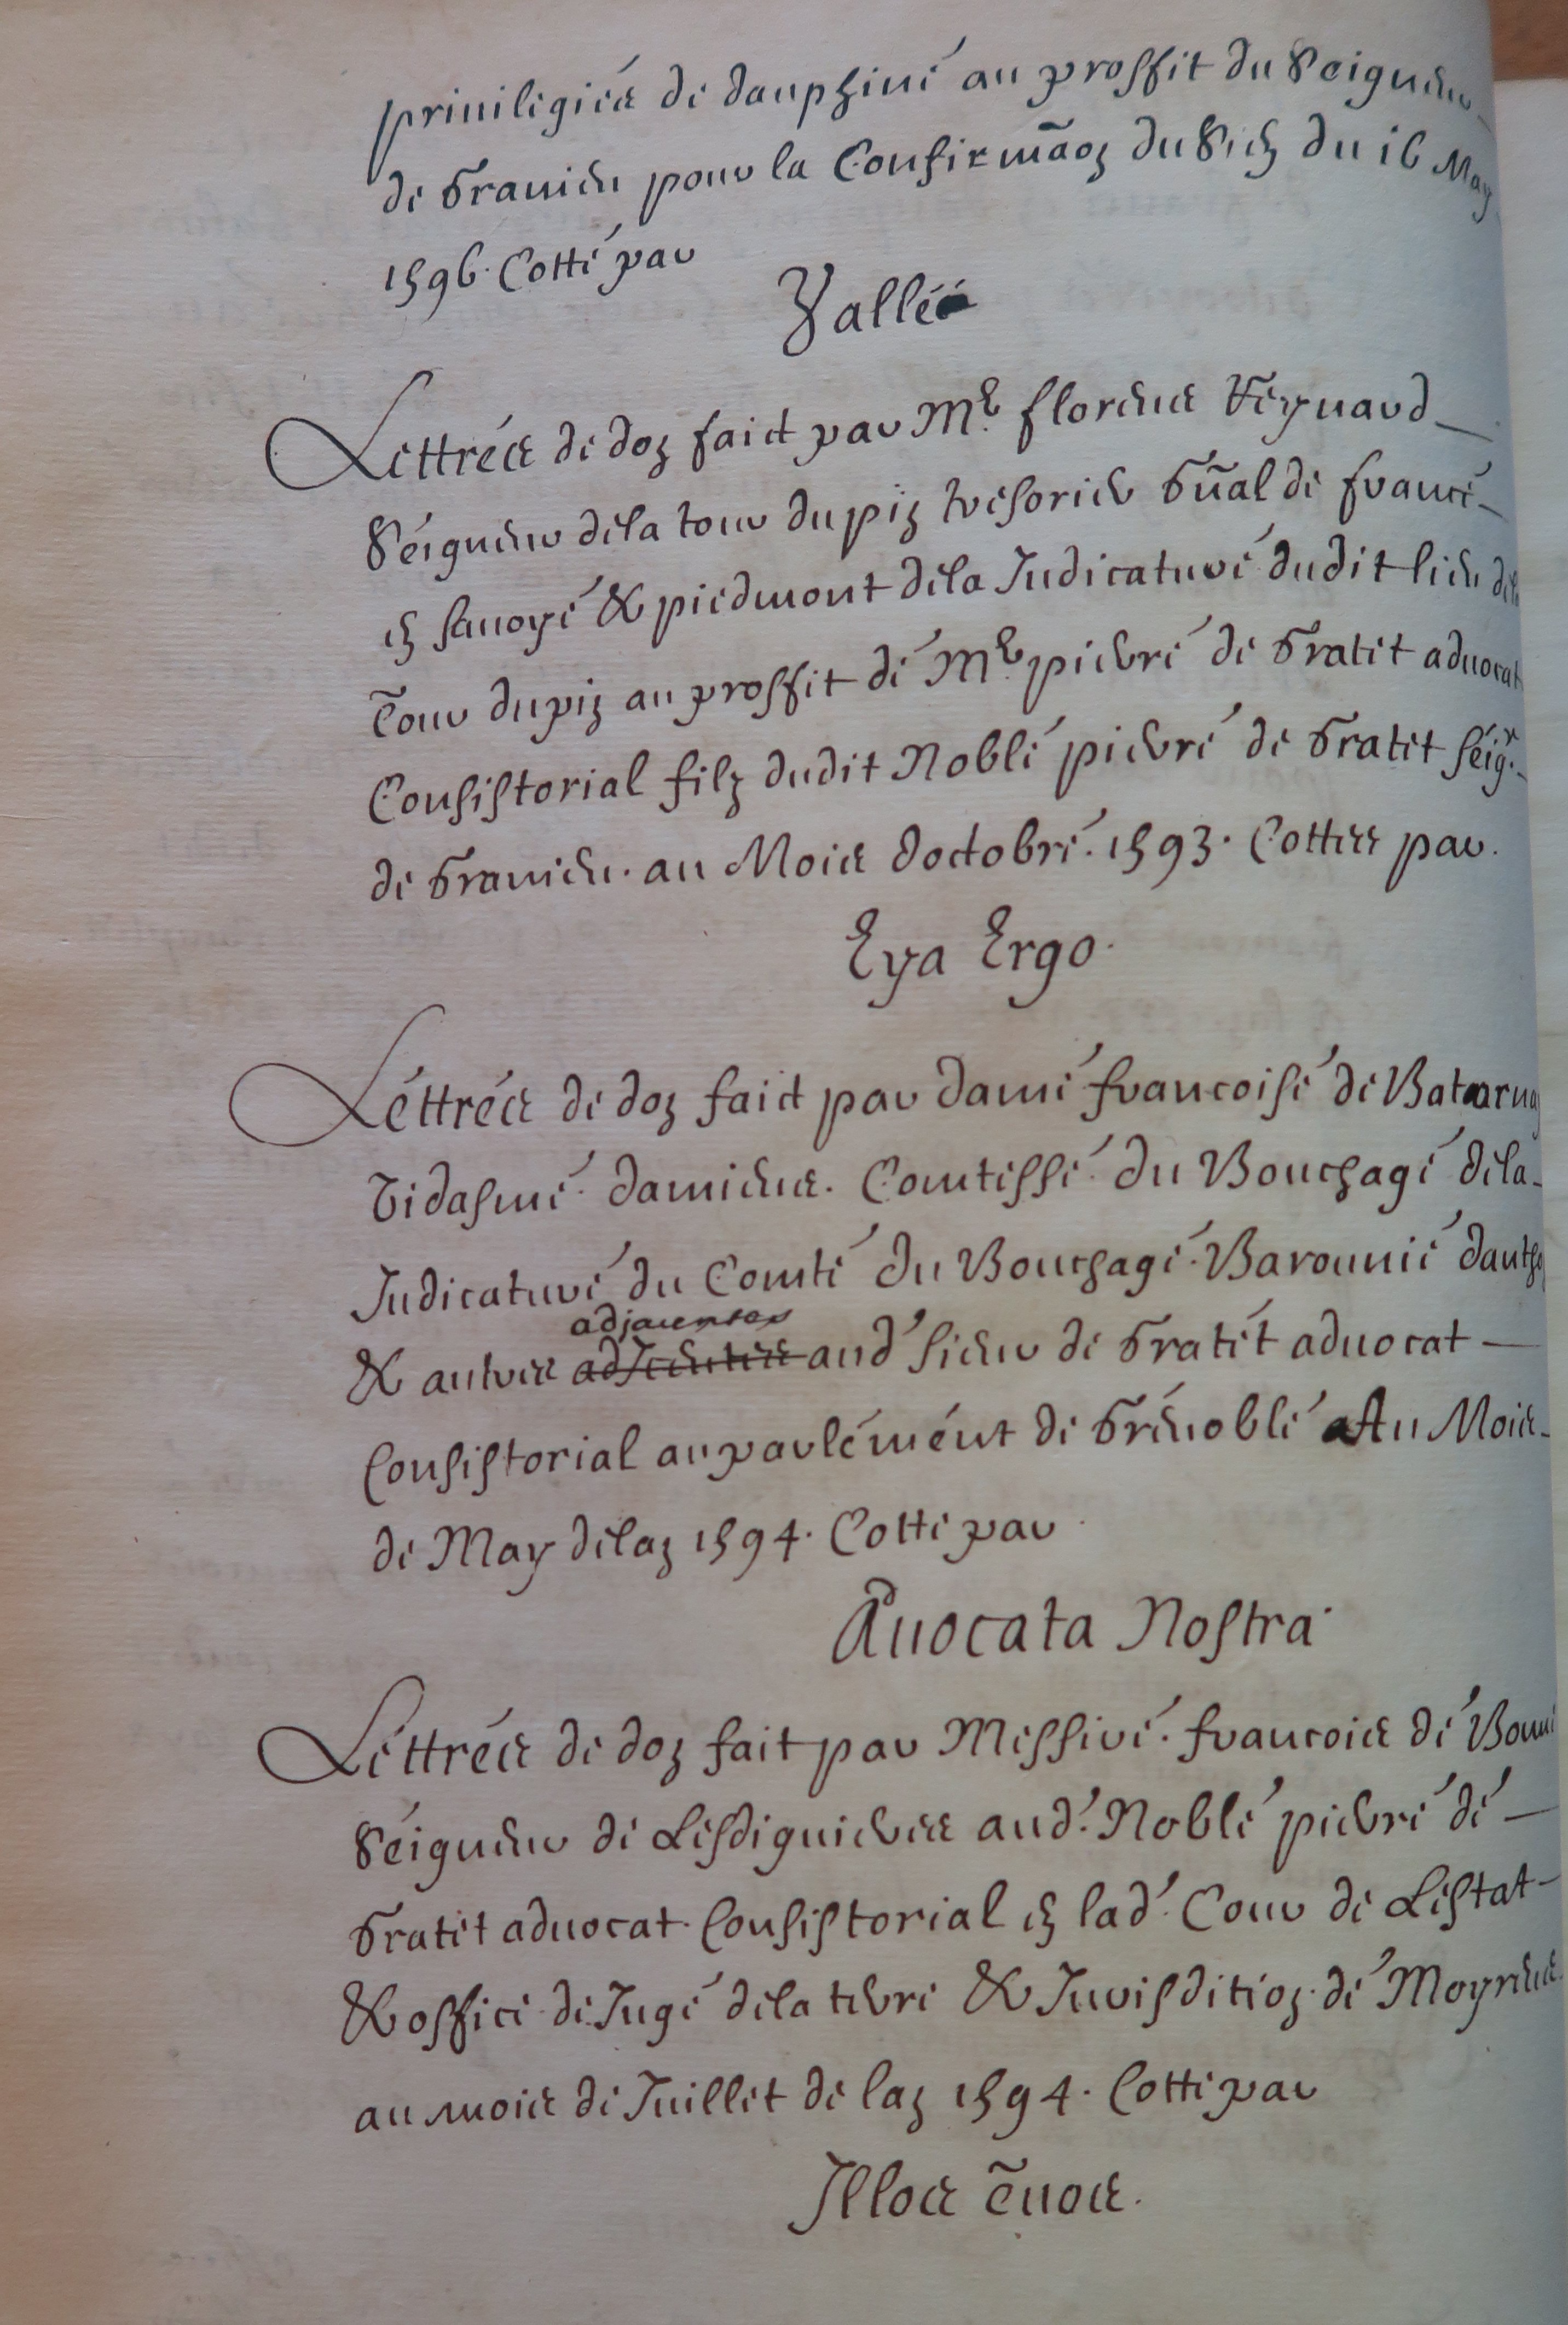 priuilegiés de dauphiné au proffit du Seigneur
de Granieu pour la Confirmãon du Sien du 16 May
1596. Cotté par
Vallée
Lettrées de don faict par Mr. florens Reynard
Séigneur de la tour du pin tresorier gñal de france
en sauoye & piedmont de la Judicature dudit lieu dela
Tour du pin au proffit de Mr. pierre de Gratet aduocat
Consistorial filz dudit Noble pierre de Gratet séigr.
de Granieu. au Mois doctobre. 1593. Cottes par.
Eya Ergo.
Léttrées de don faict par dame francoise de Batarnay
Vidasme damiens. Comtesse du Bouchage dela
Judicature du Comté du Bouchage. Baronnie dantho
adjacentes
& autres adJcentes aud' sieur de Gratet aduocat
Consistorial au parlémént de Grénoble Au Mois
de May de lan 1594. Cotté par
Auocata Nostra.
Léttrées de don fait par Messire. francois de Bonne
Séigneur de Lesdiguieres aud'. Noble pierre dé
Gratet aduocat Consistorial en lad'. Cour de Lestat
& office de Juge dela terre & Jurisdition de Moyrens
au mois de Juillet de lan 1594. Cotté par
Jllos Tuos.